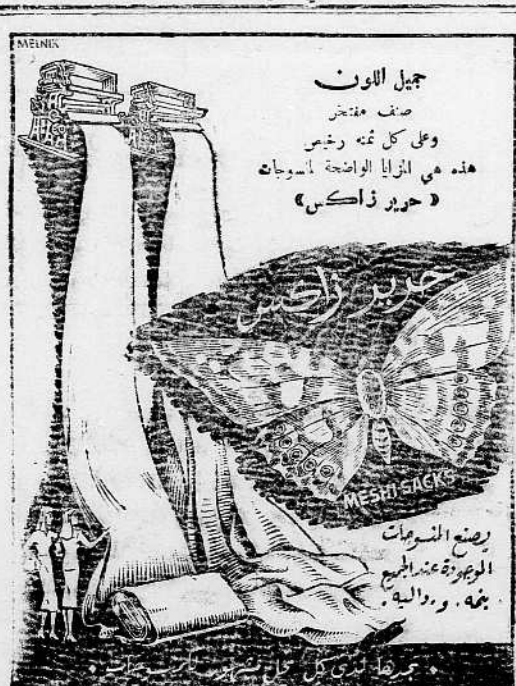 MELNIK
جميل اللون
صنف مفتخر
وعلى كل ثمنه رخيص
هذه هي المزايا الواضحة لمنسوجات
« حرير زاكس »
حرير زاكس
MESHI SACKS
يصنع المنسوجات
الموجودة عند الجميع
تجدها لدى كل محل مشهور للمنسوجات